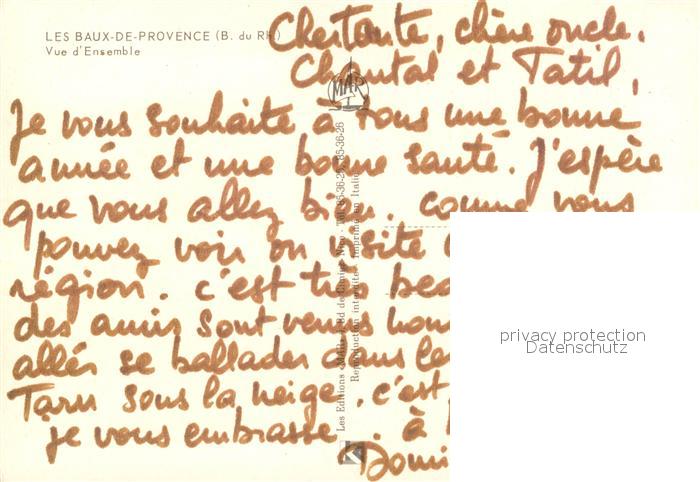 LES BAUX-DE-PROVENCE (B. du Rh.)
Vue d'Ensemble
Cher tante, chère oncle,
Chantal et Tatil,
MAR
Je vous souhaite à tous une bonne
année et une bonne santé. J'espère
que vous allez bien. comme vous
pouvez voir on visite
région. c'est très
des amis sont venus
allés se ballader dans
Tarn sous la neige. c'est
je vous embrasse. à
Domi
Les Editions «MAR»
Reproduction interdite - Imprimé en Italie
privacy protection
Datenschutz